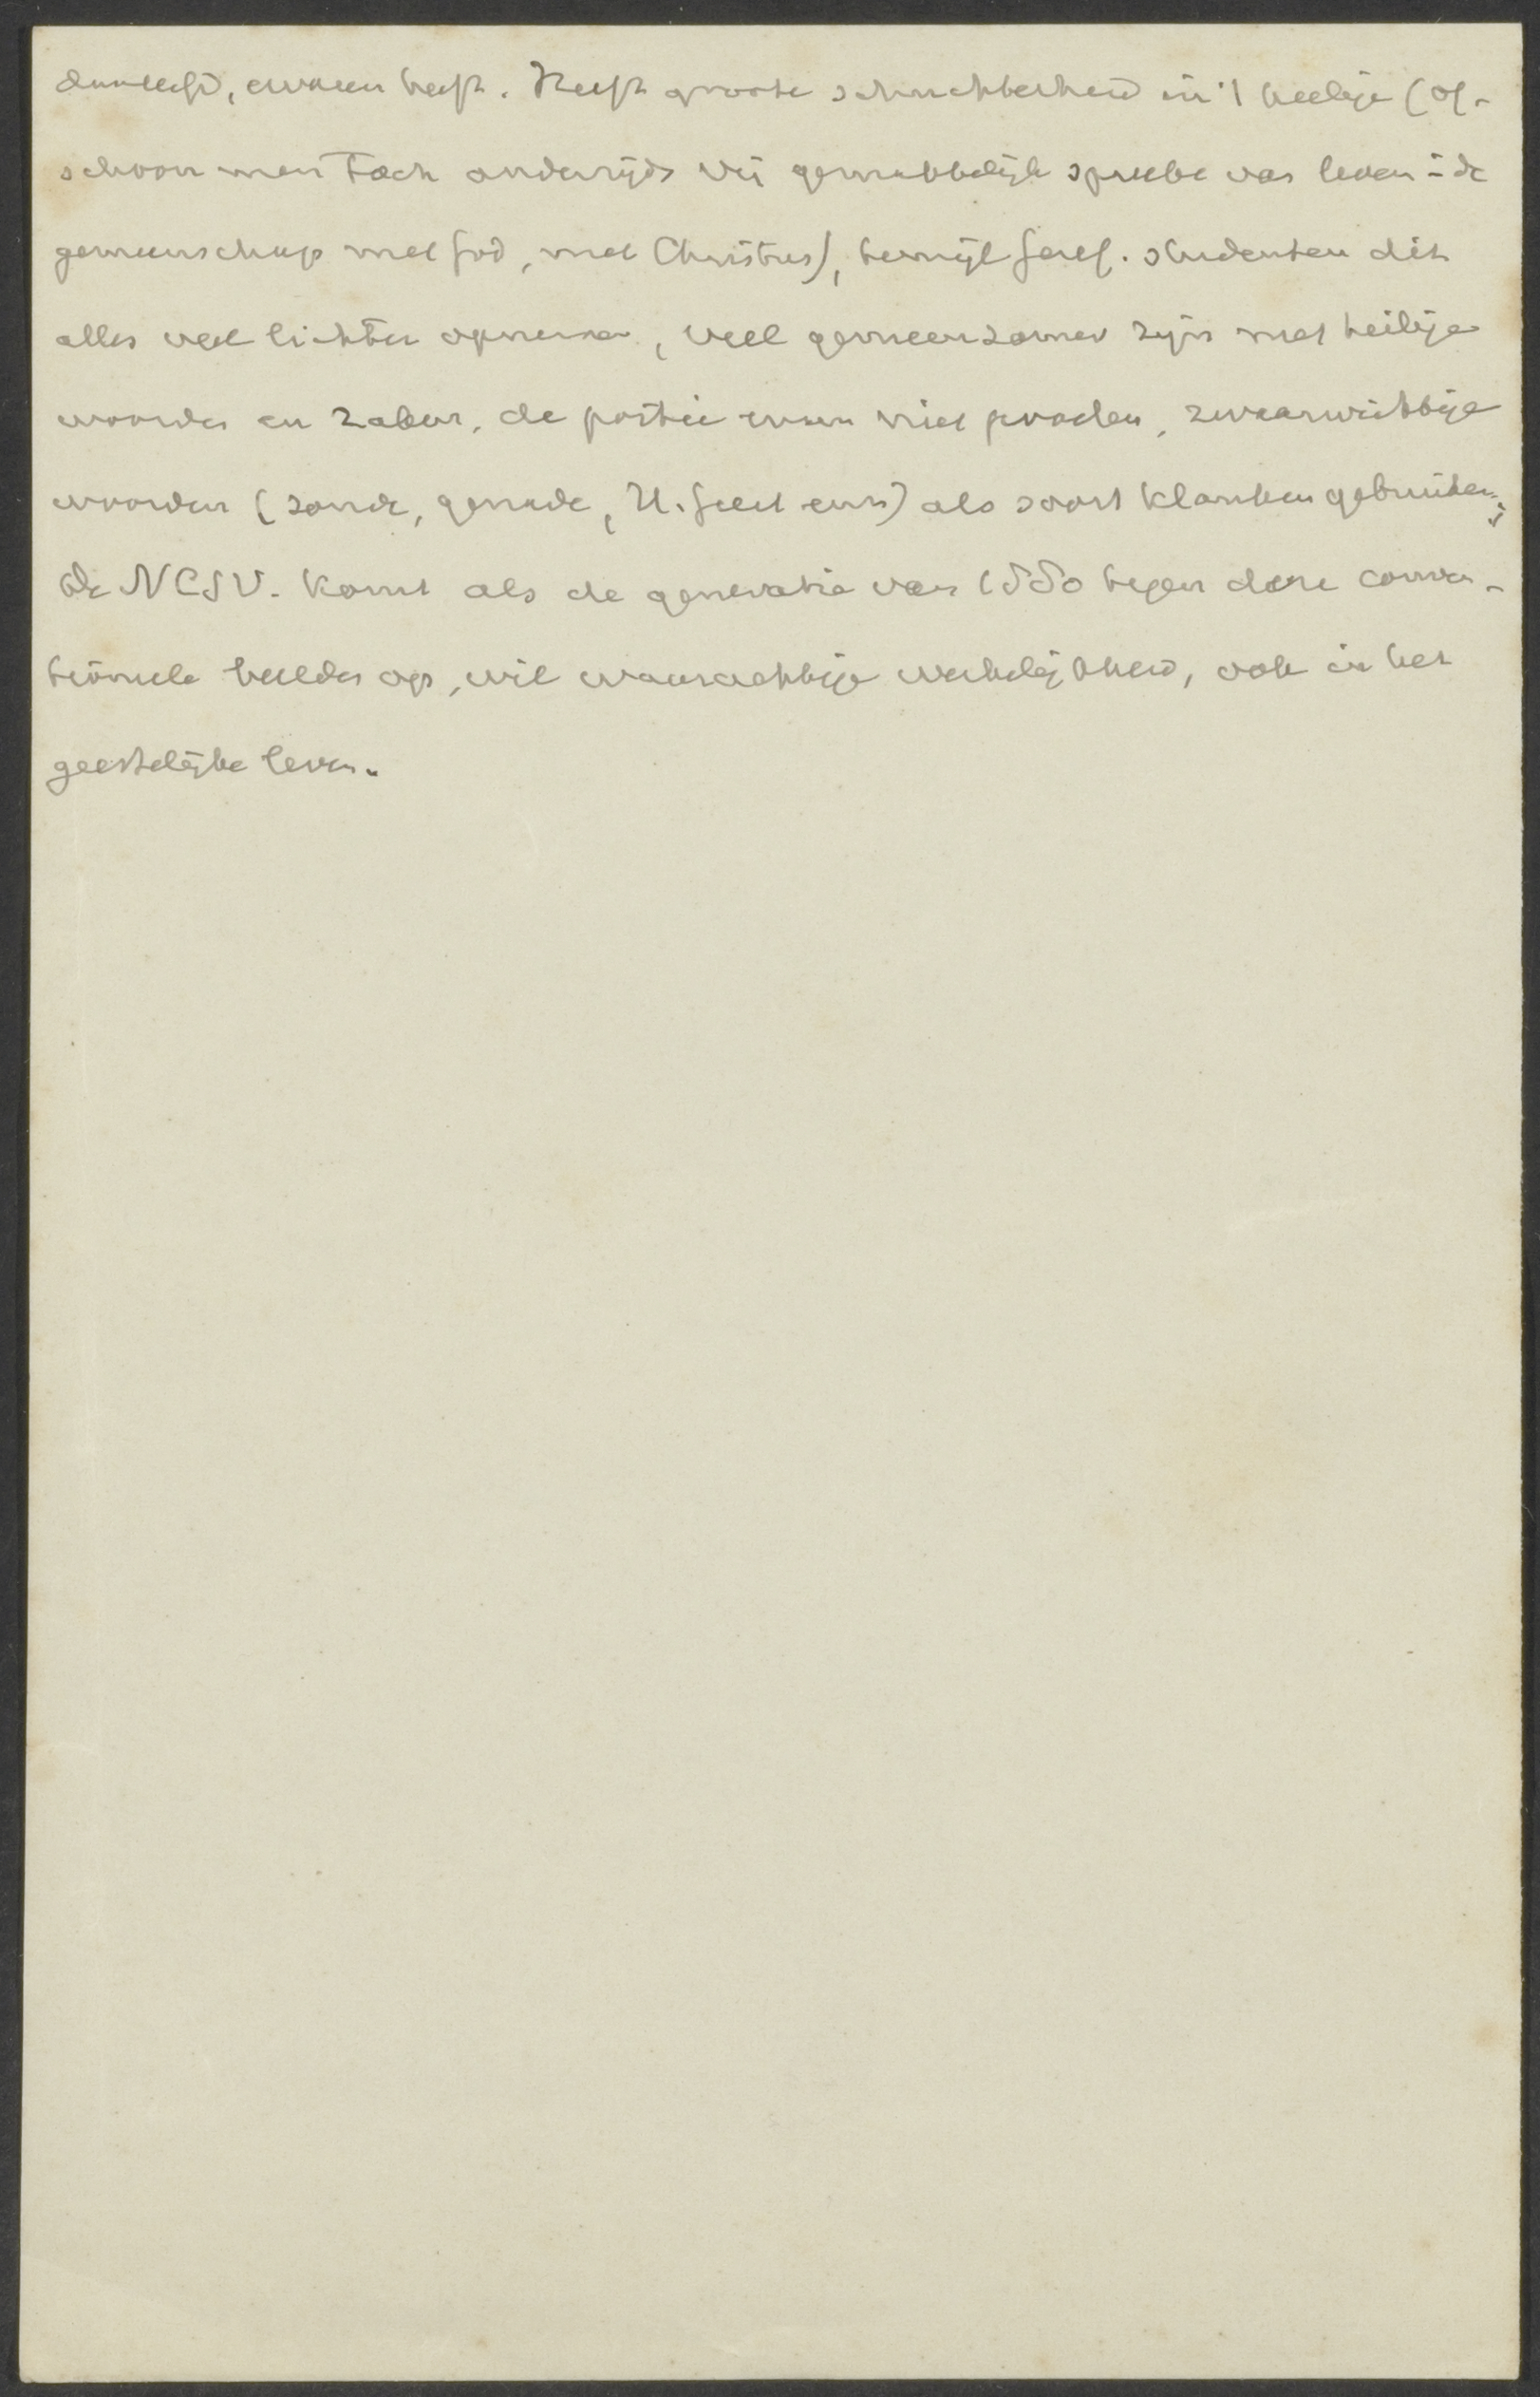 doorleefd, ervaren heeft. Heeft groote schuchterheid in 't heilige (of-
schoon men toch anderzijds vrij gemakkelijk spreke van leven i de
gemeenschap met God, met Christus), terwijl Geref. studenten dit
alles veel lichter opnemen, veel gemeenzamer zijn met heilige
woorden en zaken, de poëzie ervan niet proeven, zwaarwichtige
woorden (zonde, genade, H. Geest enz) als soort klanken gebruiken;
De NCSV. komt als de generatie van 1880 tegen deze conven-
tioneele beelden op, wil waarachtige werkelijkheid, ook in het
geestelijke leven.